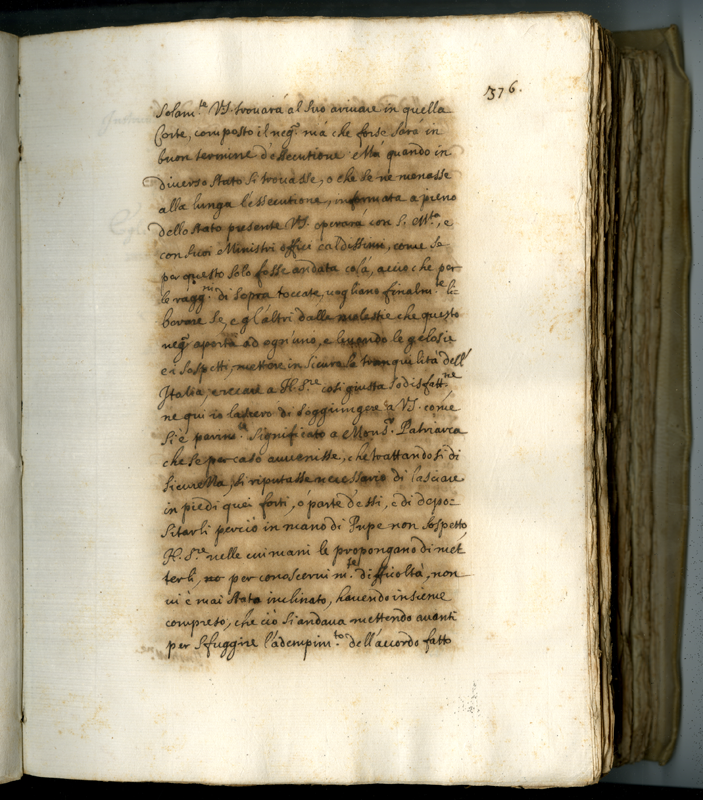 376.
Solam.te VS. trovará al suo arivare in quella
Corte, composto il neg.o má che forse sará in
buon termine d'essecutione. Má quando in
diverso stato si trovasse, o che se ne menasse
alla lunga l'essecutione, informata a pieno
dello stato presente VS. operará con S. M.tá, e
con suoi Ministri offici caldissimi, come se
per questo solo fosse andata colá, accio che per
le ragg.ni di sopra toccate, vogliano finalm.te li=
berare se, e gl'altri dalle molestie che questo
neg.o aporta ad ogn'uno, e levando le gelosie
e i sospetti, mettere in sicuro la tranquilitá dell'
Italia, e recare a N. S.re cosi giusta sodisfatt.ne
ne qui io lasciero di soggiungere a VS. come
si é parim.te significato a Mons.r Patriarca
che se per caso avvenisse, che trattandosi di
sicurezza, si riputasse necessario di lasciare
in piedi quei forti, ó parte d'essi, e di depo=
sitarli perció in mano di Pnpe non sospetto
N. S.re nelle cui mani le propongano di met
terli, no per conoscervi m.te difficoltá, non
vi é mai stata inclinato, havendo insieme
compreso, che ció si andava mettendo avanti
per sfuggire l'adempim.to dell'accordo fatto